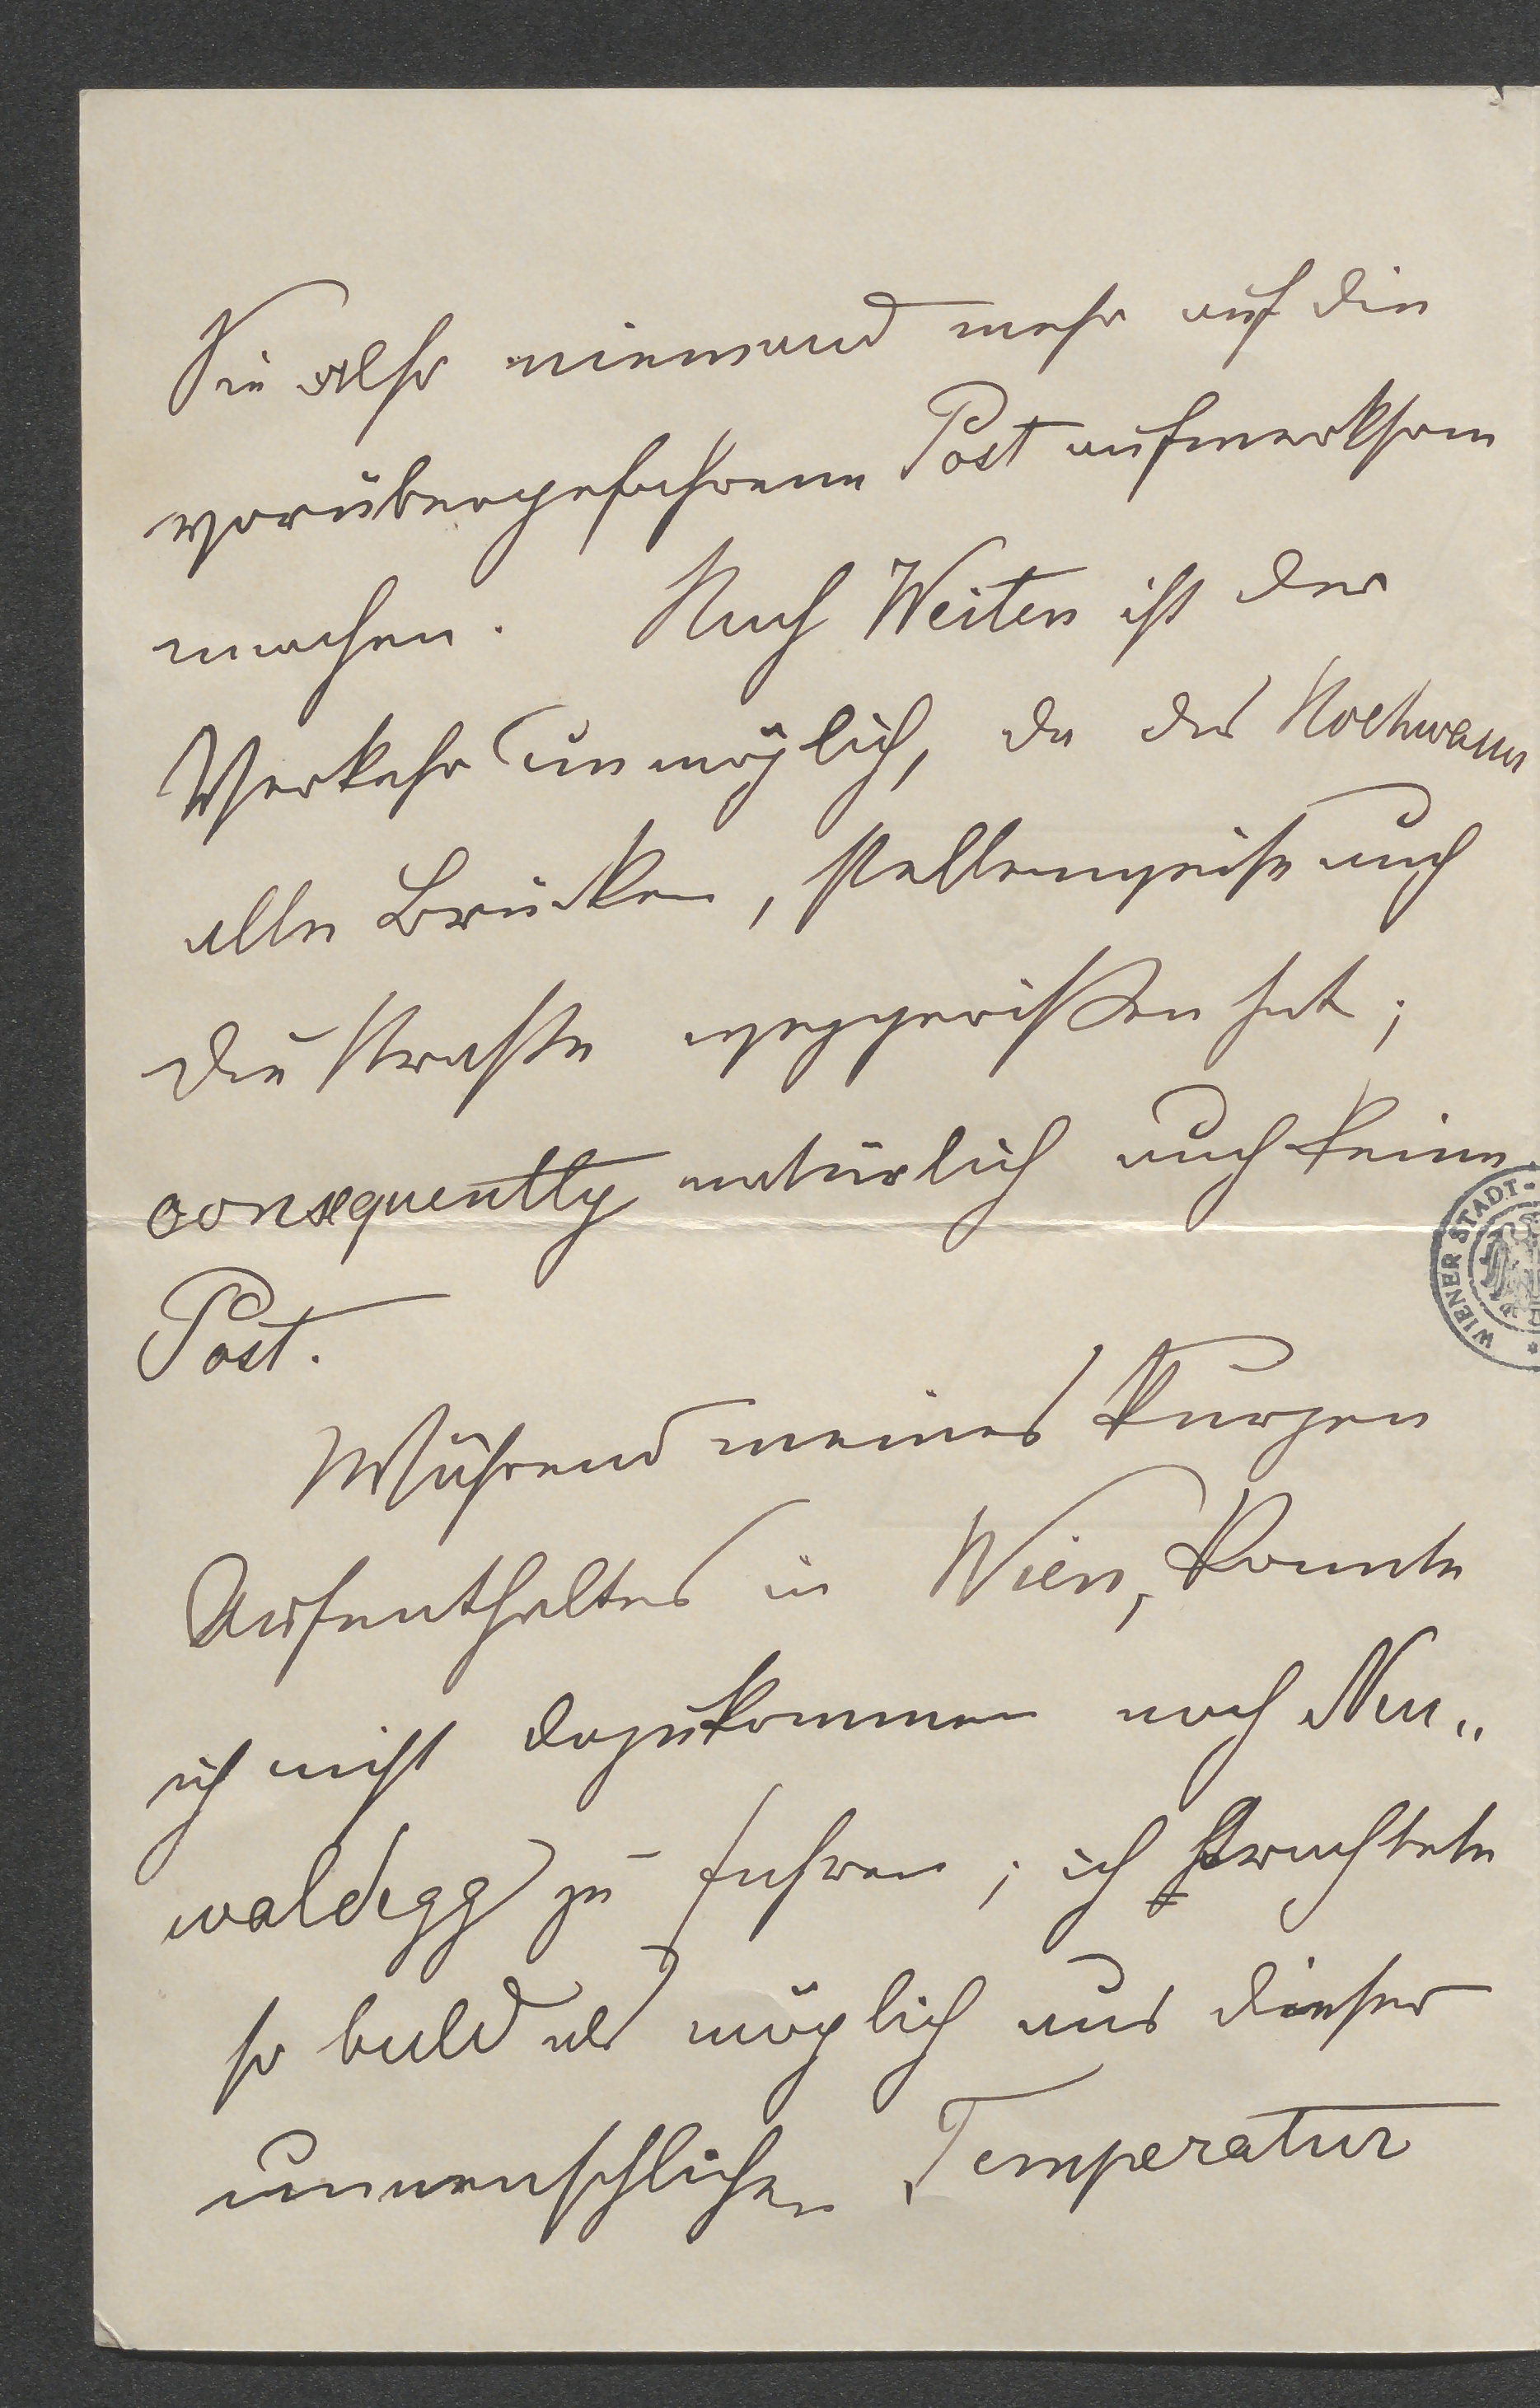 Sie also niemand mehr auf die
vorübergefahrene Post aufmerksam
machen. Nach Weiten ist der
Verkehr unmöglich, da das Hochwasser
alle Brücken, stellenweise auch
die Straße weggerißen hat;
consequently natürlich auch keine
Post.
Während meines kurzen
Aufenthaltes in Wien, konnte
ich nicht dazukommen nach Neu„
waldegg zu fahren; ich trachtete
so bald als möglich aus dieser
unmenschlichen Temperatur
WIENER STADT-